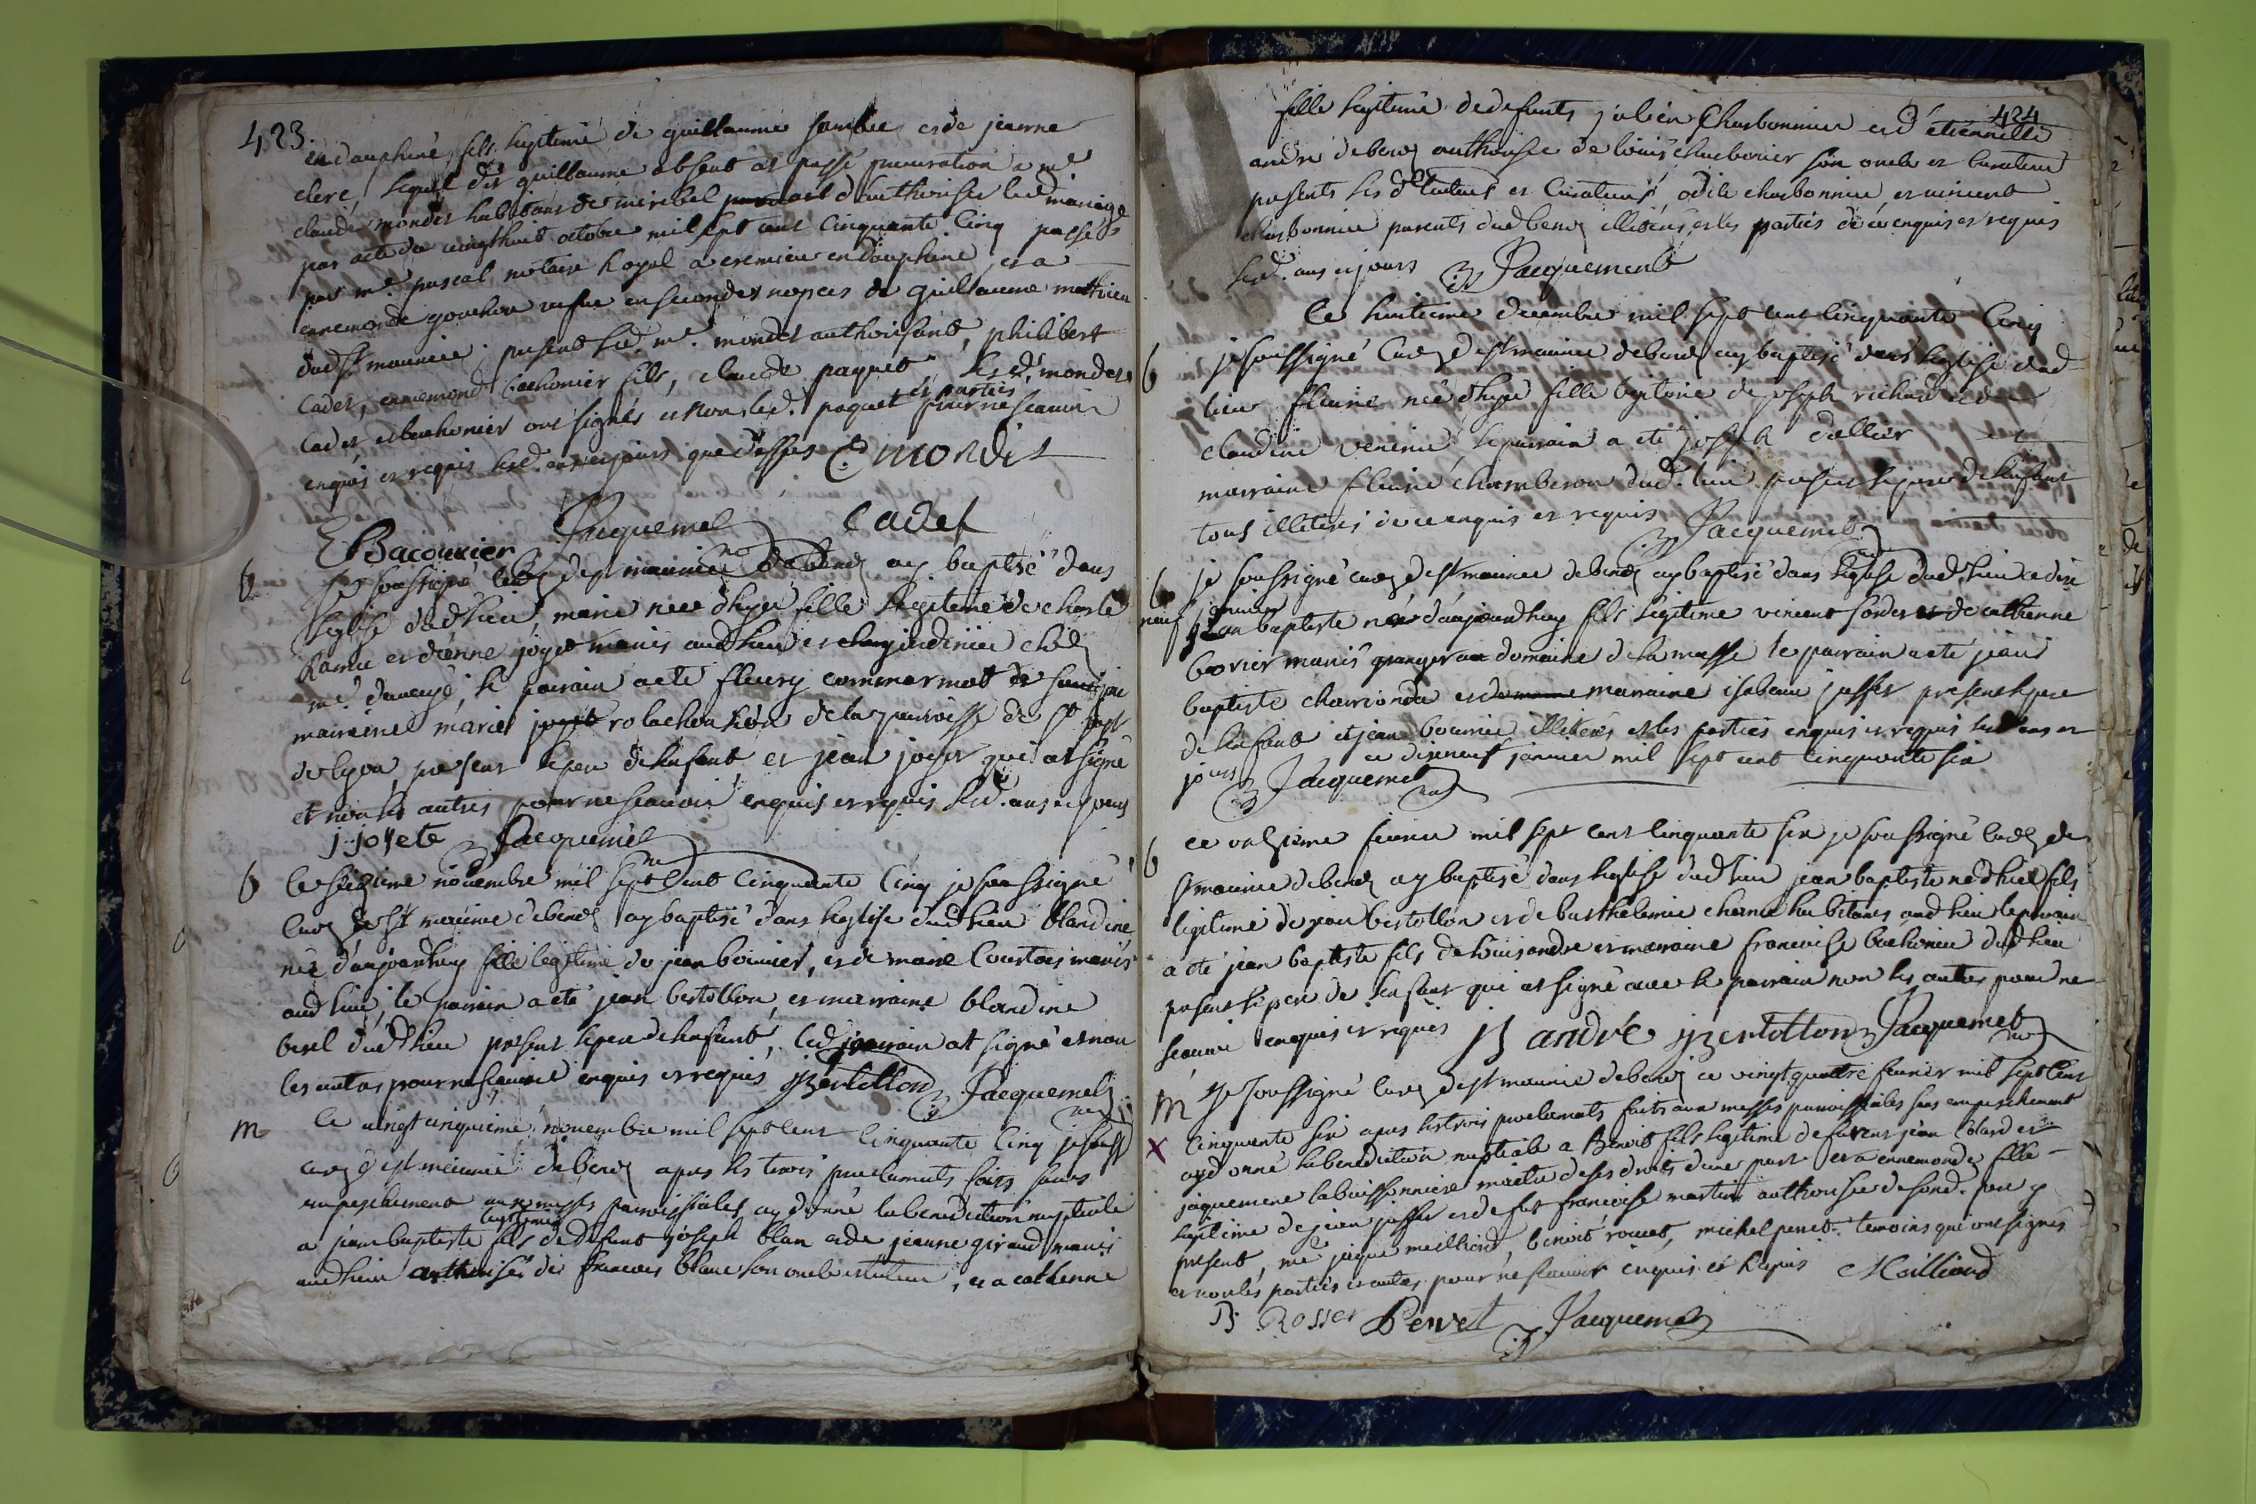 423.
en dauphiné, fils legitime de guillaume et de jeanne
clerc, lequel dit guillaume absent at passé procuration a mr
claude mondet habitant de miribel d'authoriser led mariage
par acte du vingthuit octobre mil sept cent cinquante cinq passé
par me pascal notaire Royal a cremieu en dauphiné, et a
ennemonde vesve en secondes nopces de guillaume mathieu
dud st maurice, present led. mr. mondet authorisant, philibert
cadet, ennemond bachonier fils, claude paquet, lesd. mondet
cadet et bachonier ont signés et non led. paquet et parties pour ne scavoir
enquis et requis lesd. ans et jours que dessus C mondet
E Baconnier Jacquemet cadet
b Je soussigné curé de st maurice de beno ay baptisé dans
l'eglise dud lieu, marie née d'hyer fille legitime de charle
ramu et d'enne joyet mariés aud lieu et jardinier chez
mr d'anveyse, le parain a eté fleury commarmot
maraine marie de la parroisse de st
de lyon, present le pere de l'enfant, et jean joyet qui at signé
et non les autres pour ne scavoir enquis et requis lesd. ans et jours
j joyete Jacquemet
b Ce seizieme novembre mil sept cent cinquante cinq je soussigné
curé de st maurice de beno ay baptisé dans l'eglise dud lieu blandine
née d'aujourdhuy fille legitime de jean boinier, et de marie courtois mariés
aud lieu, le parain a eté jean bertollon, et marraine blandine
berel dud lieu present le pere de l'enfant, led parain at signé et non
les autres pour ne scavoir enquis et requis jbertollon Jacquemet
m Ce vingtcinquieme novembre mil sept cent cinquante cinq je souss
curé de st maurice de beno apres les trois proclamats faits sans
empeschement aux messes paroissiales ay donné la benediction nuptiale
a jean baptiste legitime fils de defunt joseph blan et de jeanne giraud mariés
aud lieu authorisé de francois blanc son oncle et tuteur, et a catherine
424
fille legitime de defunts julien Charbonnier et d'etiennette
andre de beno authorisée de louis charbonier son oncle et curateur
presents lesd tuteurs et curateurs, odile charbonnier, et vincent
charbonnier parents dud beno illiterés, et les parties de ce enquis et requis
lesd. ans et jours Jacquemet
Ce huitieme decembre mil sept cent cinquante cinq
b je soussigné curé de st maurice de beno ay baptisé dans l'eglise dud
lieu fleurie née d'hyer fille legitime de joseph richard et de
claudine venerin, le parrain a eté joseph dallier et
marraine fleurie chamberon dud. lieu present le pere de l'enfant
tous illiterés de ce enquis et requis Jacquemet
b je soussigné curé de st maurice de beno ay baptisé dans l'eglise dud lieu ce dix
neuf janvier jean baptiste né d'aujourdhuy fils legitime vincent et de catherine
bovier mariés granger au domaine de la masse le parrain a eté jean
baptiste charionda et marraine isabeau josser present le pere
de l'enfant et jean bournie illiterés et les parties enquis et requis les ans et
jours ce dixneuf janvier mil sept cent cinquante six
Jacquemet
b ce onzieme fevrier mil sept cent cinquante six je soussigné curé de
st maurice de beno ay baptisé dans l'eglise dud lieu jean baptiste né d'hier fils
legitime de jean bertollon et de barthelemie charne habitans aud lieu le parrain
a eté jean baptiste fils de louis andre et marraine francoise bachonier dud lieu
present le pere de l'enfant qui at signé avec le parrain non les autres pour ne
scavoir enquis et requis JB andré jbertollon Jacquemet
m Je soussigné curé de st maurice de beno ce vingt quattre fevrier mil sept cent
x cinquante six apres les trois proclamats faits aux messes paroissiales sans empeschement
ay donné la benediction nuptiale a Benoit fils legitime de feurent jean blard et
jaquemine labuissonniere maitre de ses droits d'une part et a ennemonde fille
legitime de jean josser et de fut francoise martin authorisée de sond. pere y
present, me jaque meilliond, benoit roucet, michel penet temoins qui ont signés
et non les parties et autres pour ne scavoir enquis et Requis Mailliond
B Rosset Pervet Jacquemet